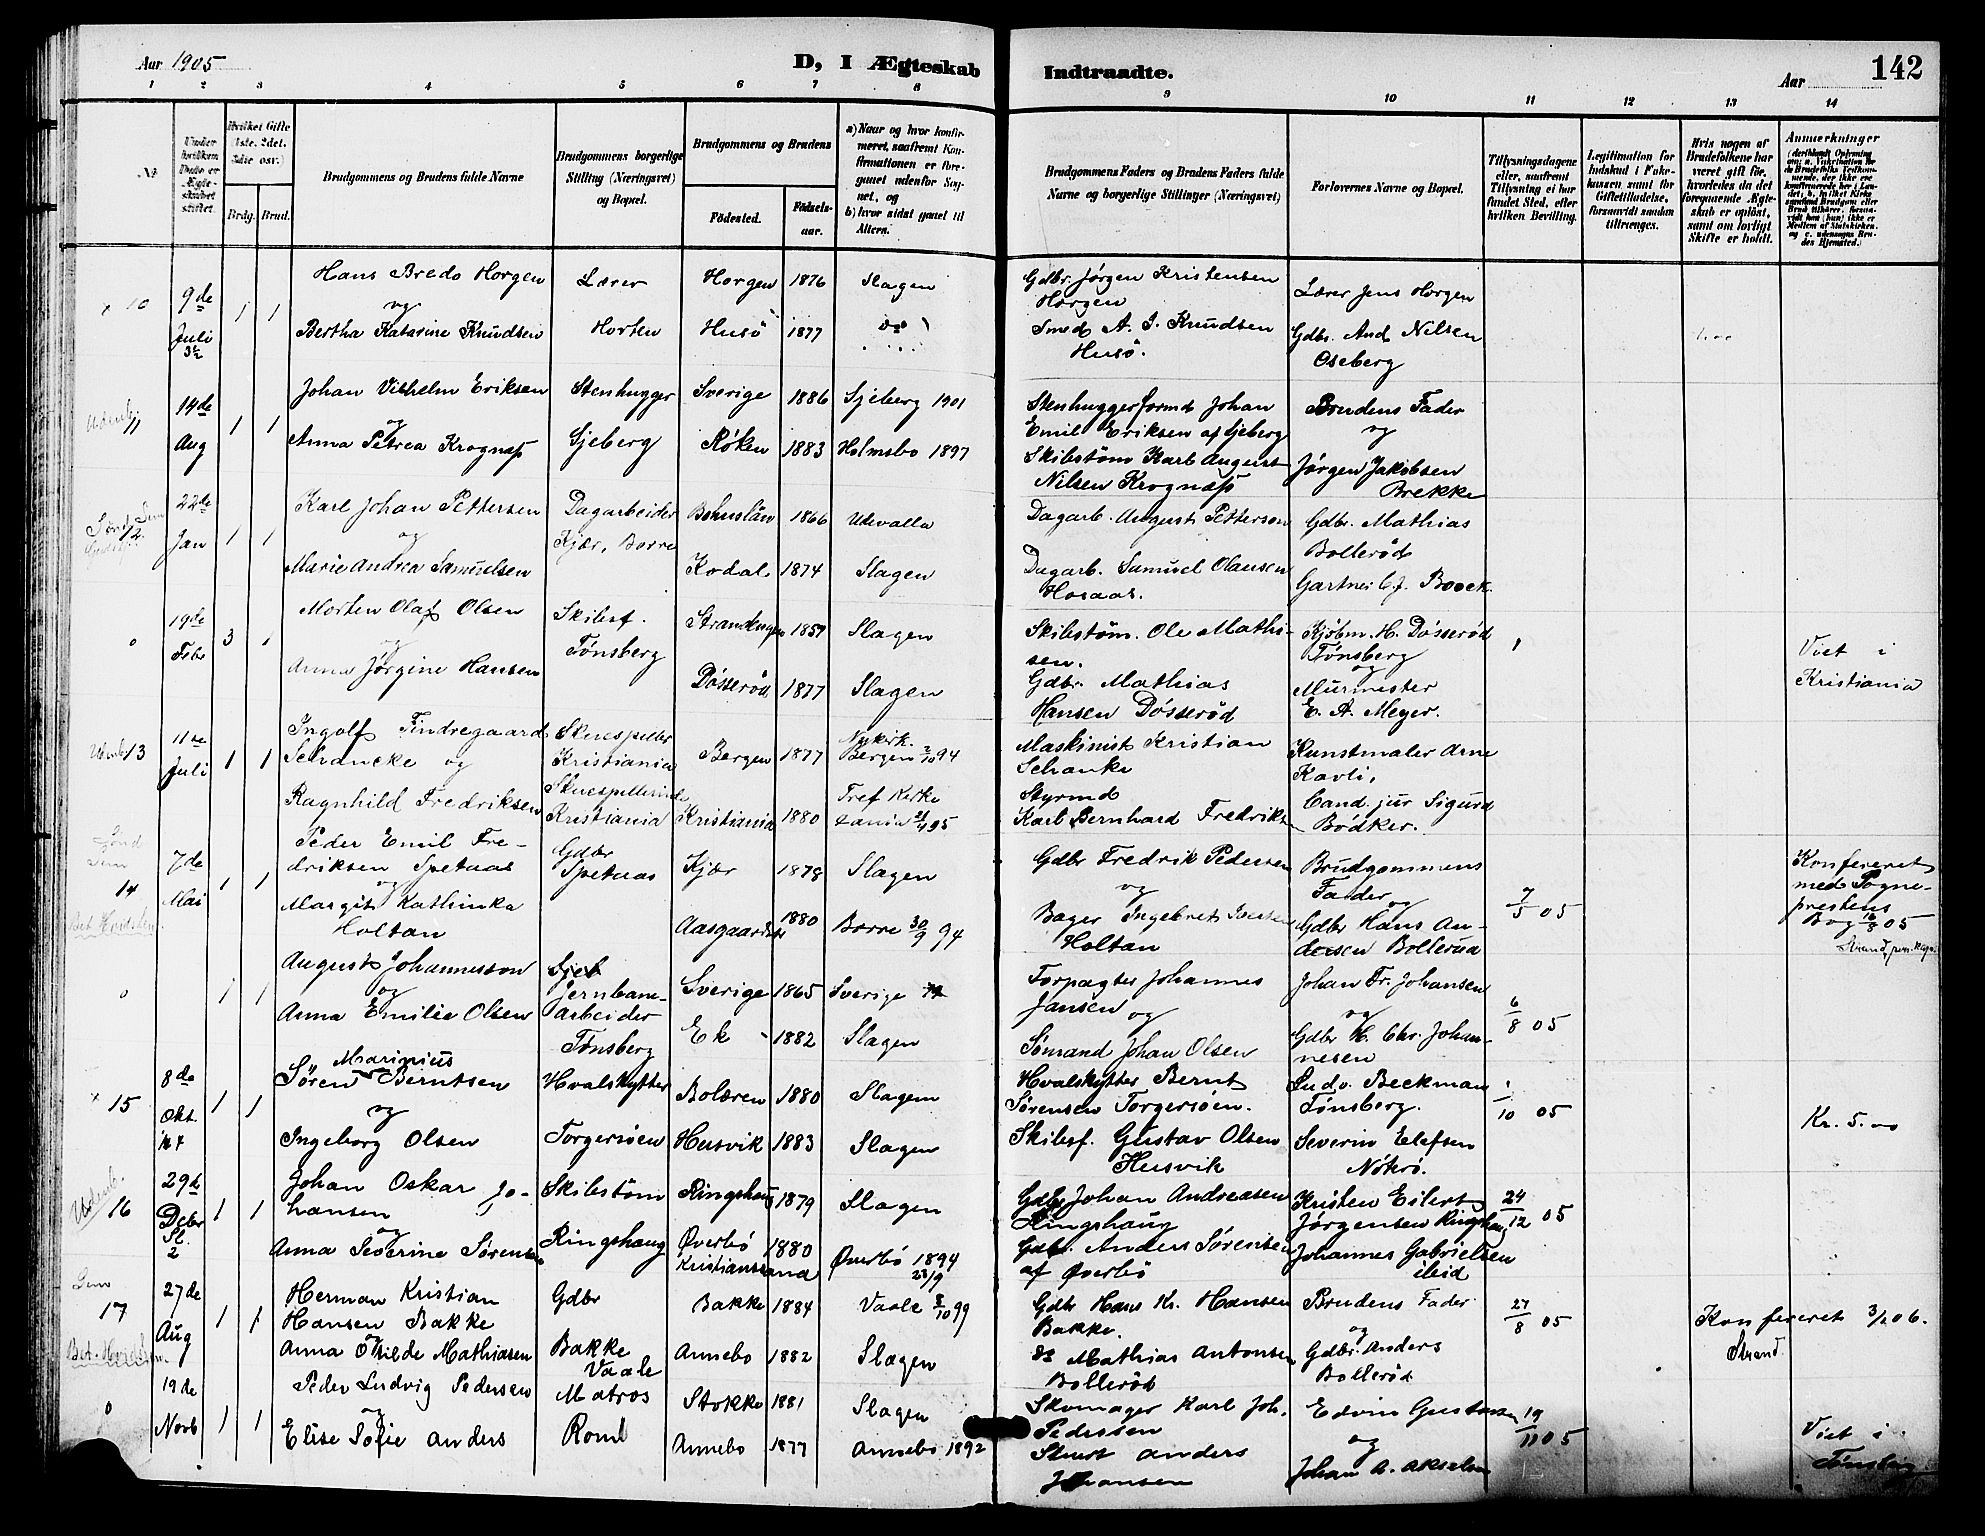 Aar 1905
D, I Ægteskab
Indtraadte.
Aar
142
1 2 3 4 5 6 7 8
9 10 11 12 13 14
Brudgommens og Brudens fulde Navne
Brudgommens borgerlige
Stilling (Næringsvei)
og Bopæl.
Brudgommens og Brudens
Fødested.
Fødsels-
aar.
Brdg.
Brud.
a) Naar og hvor konfir-
meret, saafremt Kon-
firmationen er fore-
gaaet udenfor Sog-
net, og
b) hvor sidst gaaet til
Alters.
Brudgommens Faders og Brudens Faders fulde
Navne og borgerlige Stillinger (Næringsvei)
Forlovernes Navne og Bopæl.
Tillysningsdagene
eller, saafremt
Tillysning ei har
fundet Sted, efter
hvilken Bevilling.
Legitimation for
Indskud i Enke-
kassen samt for
Giftetilladelse,
forsaavidt saadan
tiltrænges.
Hvis nogen af
Brudefolkene har
været gift før,
hvorledes da det
foregaaende Ægte-
skab er opløst,
samt om lovligt
Skifte er holdt.
Anmerkninger
x 10
9de
Juli
1 1
Hans Bredo Horgen
og
Bertha Katarine Knudsen
Lærer
Horten
Horgen 1876 Slagen
Husö 1877 do
Gdbr Jørgen Kristensen
Horgen
Smed A. J. Knudsen
Husö.
Lærer Jens Horgen
Gdbr. And Nilsen
Oseberg
11
14de
Aug
1 1
Johan Vilhelm Eriksen
og
Anna Petrea Krognæss
Stenhugger
Sjeberg
Sverige 1886 Sjeberg 1901
Røken 1883 Holmsbo 1897
Stenhuggerformd Johan
Emil Eriksen af Sjeberg
Skibstøm Karl August
Nilsen Krognæss
Brudens Fader
og
Jørgen Jakobsen
Brekke
Sønd Sem
12
22de
Jan
1 1
Karl Johan Pettersen
og
Marie Andrea Samuelsen
Dagarbeider
Kjær, Borre
Bohuslän 1866 Udevalla
Kodal 1874 Slagen
Dagarb. August Petterson
Dagarb. Samuel Olausen
Hosaas.
Gdbr. Mathias
Bollerød
Gartner C. J. Boeck.
0
19de
Febr
3 1
Morten Olaf Olsen
og
Anna Jørgine Hansen
Skibsf.
Tønsberg
1857 Slagen
Døsserød 1877 Slagen
Skibstøm. Ole Mathi-
sen.
Gdbr. Mathias
Hansen Døsserød
Kjøbm. H. Døsserød
Tønsberg
og
Murmester
E. A. Meyer.
Viet i
Kristiania
13
11te
Juli
1 1
Ingolf Tindregaard
Schancke og
Ragnhild Fredriksen
Skuespiller
Kristiania
Skuespillerinde
Kristiania
Bergen 1877 Nykirk. Bergen 2/10 94
Kristiania 1880 Tref Kirke 21/4 95
Maskinist Kristian
Schanke
Styrmd
Karl Bernhard Fredriks
Kunstmaler Arne
Kavli,
Cand. jur Sigurd
Bödker.
Sønd
Sem
14
7de
Mai
1 1
Peder Emil Fre-
driksen Spetaas
og
Margit Kathinka
Holtan
Gdbr
Spetaas
Kjær 1878 Slagen
Aasgaardstr 1880 Borre 30/9 94
Gdbr Fredrik Pedersen
og
Bager Ingebret
Holtan
Brudgommens
Fader
og
Gdbr Hans An-
dersen Bollerud
7/5 05
Konfereret
med Sogne-
prestens
Bog 16/8 05
Strand, pers. kap.
0
1 1
August Johannesson
og
Anna Emilie Olsen
Jernbane-
arbeider
Tønsberg
Sverige 1865 Sverige
Ek 1882 Slagen
Forpagter Johannes
Jansen
og
Sømand Johan Olsen
Johan Fr. Johansen
og
Gdbr H. Chr. Johan-
nesen
6/8 05
x 15
8de
Okt.
1 1
Sören Marinius Berntsen
og
Ingeborg Olsen
Hvalskytter
Torgersøen
Bolæren 1880 Slagen
Husvik 1883 Slagen
Hvalskytter Bernt
Sørensen Torgersøen.
Skibsf. Gustav Olsen
Husvik
Ludv. Beckman
Tønsberg.
Severin Elefsen
Nøtrø.
1/10 05
Kr. 5.00
16
29de
Debr
Kl.
2
1 1
Johan Oskar Jo-
hansen
og
Anna Severine Sørensen
Skibstøm
Ringshaug
Ringshaug 1879 Slagen
Øverbö Kristianssand 1880 Øverbö 1894 23/9
Gdbr Johan Andreasen
Ringshaug
Gdbr. Anders Sørensen
af Øverbö
Kristen Eilert
Jørgensen Ringshaug
Johannes Gabrielsen
ibid
24/12 05
Sem
17
27de
Aug
1 1
Herman Kristian
Hansen Bakke
og
Anna Otilde Mathiasen
Gdbr
Bakke
Vaale
Bakke 1884 Vaale 8/10 99
Annebo 1882 Slagen
Gdbr Hans Kr. Hansen
Bakke.
do Mathias Antonsen
Bollerød
Brudens Fader
og
Gdbr. Anders
Bollerød
27/8 05
Konfereret 3/1 06.
Strand.
0
19de
Novb
1 1
Peder Ludvig Pedersen
og
Elise Sofie Anders
Matros
Roml
Stokke 1881 Slagen
Annebo 1877 Annebo 1892
Skomager Karl Joh.
Pedersen
Anders
Johansen
Edvin Gustavsen
og
Johan A. Akselsen
19/11 05
Viet i
Tønsberg